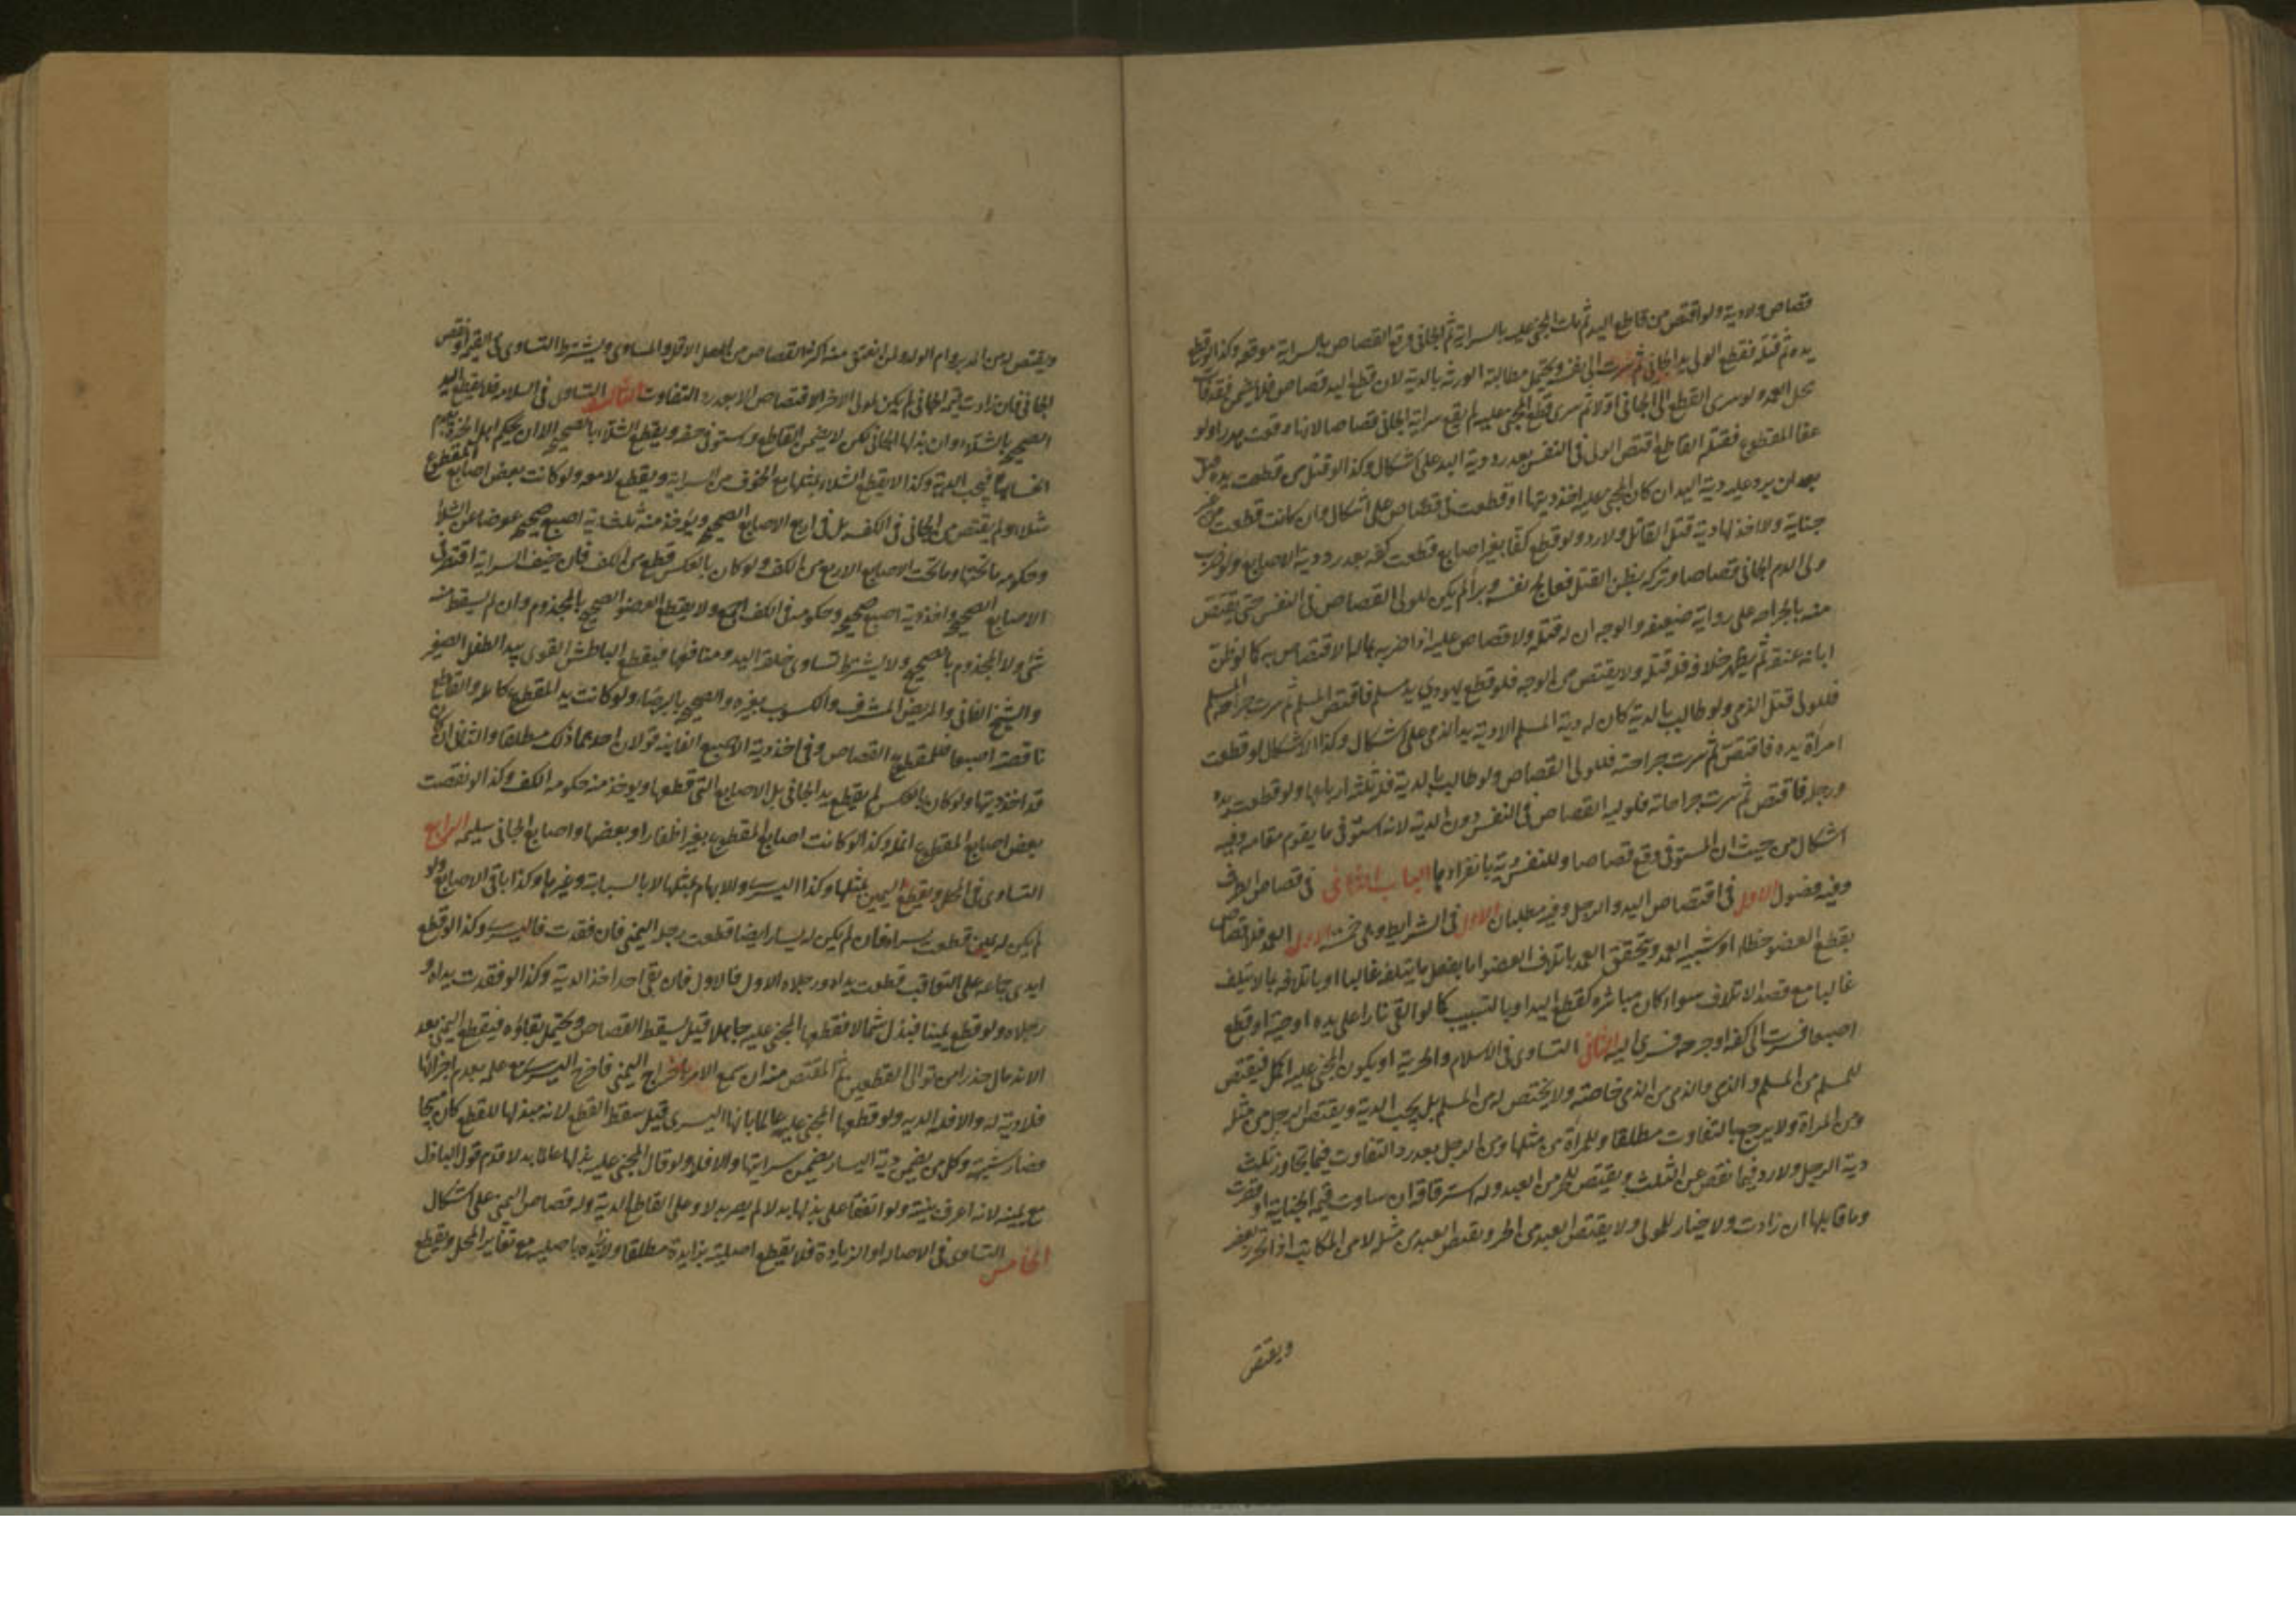 قصاص ولا دية ولو اقتص من قاطع اليد ثم مات المجني عليه بالسراية ثم الجاني وقع القصاص بالسراية موقعه وكذا لو قطع
يده ثم قتله فقطع الولي يد الجاني ثم سرت الى نفسه ويحتمل مطالبة الورثة بالدية لان قطع اليد قصاص فلا يضمن
محل العمد ولو سرى القطع الى الجاني اولا ثم سرى قطع المجني عليه لم يقع سراية الجاني قصاصا لانها وقعت هدرا ولو
عفا المقطوع فقتله القاطع اقتص الولي في النفس بعد رد دية اليد على اشكال وكذا لو قتل من قطعت يده قبل
بعد ان يرد عليه دية اليد ان كان المجني عليه اخذ ديتها او قطعت في قصاص على اشكال وان كانت قطعت من غير
جناية ولا اخذ لها دية قتل القاتل ولا رد ولو قطع كفا بغير اصابع قطعت كفه بعد رد دية الاصابع ولو ضرب
ولي الدم الجاني قصاصا وتركه بظن القتل فعالج نفسه وبرأ لم يكن للولي القصاص في النفس حتى يقتص
منه بالجراحة على رواية ضعيفة والوجه ان له قتله ولا قصاص عليه اذا ضربه بما له الاقتصاص به كما لو ظن
ابانة عنقه ثم يظهر خلافه فله قتله ولا يقتص من الوجه فلو قطع يهودي يد مسلم فاقتص المسلم ثم سرت جراحة المسلم
فللولي قتل الذمي ولو طالب بالدية كان له دية المسلم الا دية يد الذمي على اشكال وكذا الاشكال لو قطعت
امراة يده فاقتص ثم سرت جراحته فللولي القصاص ولو طالب بالدية فله ثلثة ارباعها ولو قطعت يده
ورجله فاقتص ثم سرت جراحاته فلوليه القصاص في النفس دون الدية لانه استوفى ما يقوم مقامه وفيه
اشكال من حيث ان المستوفى وقع قصاصا وللنفس دية بانفرادها الباب الثاني في قصاص الطرف
وفيه فصول الاول في اقتصاص اليد والرجل وفيه مطلبان الاول في الشرايط وهي خمسة الاول العمد فلا قصاص
بقطع العضو خطاء او شبيه العمد ويتحقق العمد باتلاف العضو اما بفعل ما يتلفه غالبا او باتلافه بما لا يتلف
غالبا مع قصد الاتلاف سواء كان مباشرة كقطع اليد او بالتسبيب كما لو القى نارا على يده او حية او قطع
اصبعا فسرت الى كفه او جرحه فسرى اليه الثاني التساوى في الاسلام والحرية او يكون المجني عليه اكمل فيقتص
للمسلم من المسلم والذمي والذمي من الذمي خاصة ولا يقتص له من المسلم بل يجب الدية ويقتص للرجل من مثله
ومن المراة ولا يرجع بالتفاوت مطلقا وللمراة من مثلها ومن الرجل بعد رد التفاوت فيما تجاوز ثلث
دية الرجل ولا رد فيما نقص عن الثلث ويقتص للحر من العبد وله استرقاقه ان ساوت قيمته الجناية او قصرت
وما قابلها ان زادت ولا خيار للمولى ولا يقتص للعبد من الحر ويقتص للعبد من مثله لا من المكاتب اذا تحرر بعضه
ويقتص
ويقتص له من المدبر وام الولد ولمن انعتق منه اكثر القصاص من الاقل والمساوي ويشترط التساوى في القيمة او نقص
الجاني فان زادت قيمة الجاني لم يكن لمولى الاخر الاقتصاص الا بعد رد التفاوت الثالث التساوى في السلامة فلا يقطع اليد
الصحيحة بالشلاء وان بذلها الجاني لكن لا يضمن القاطع واستوفى حقه ويقطع الشلاء بالصحيحة الا ان يحكم اهل الخبرة بعدم
انحسامها فيجب الدية وكذا لا يقطع الشلاء بمثلها مع الخوف من السراية ويقطع لا معه ولو كانت بعض اصابع المقطوع
شلاء لم يقتص من الجاني في الكف بل في اربع الاصابع الصحيحة ويؤخذ منه ثلث دية اصبع صحيحة عوضا عن الشلاء
وحكومة ما تحتها وما تحت الاصابع الاربع من الكف ولو كان بالعكس قطع من الكف فان خيف السراية اقتص في
الاصابع الصحيحة واخذ دية اصبع صحيحة وحكومة في الكف اجمع ولا يقطع العضو الصحيح بالمجذوم وان لم يسقط منه
شئ ولا المجذوم بالصحيح ولا يشترط تساوى خلقة اليد ومنافعها فيقطع الباطش القوى بيد الطفل الصغير
والشيخ الفاني والمريض المشرف والكسوب بغيره والصحيح بالبرصاء ولو كانت يد المقطوع كاملة والقاطع
ناقصة اصبعا فللمقطوع القصاص وفي اخذ دية الاصبع الفايتة قولان احدهما ذلك مطلقا والثاني ان كان
قد اخذ ديتها ولو كان بالعكس لم يقطع يد الجاني بل الاصابع التي قطعها ويؤخذ منه حكومة الكف وكذا لو نقصت
بعض اصابع المقطوع انملة وكذا لو كانت اصابع المقطوع بغير اظفار او بعضها واصابع الجاني سليمة الرابع
التساوى في المحل ويقطع اليمين بمثلها وكذا اليسرى والابهام بمثلها لا بالسبابة وغيرها وكذا باقي الاصابع ولو
لم يكن له يمين قطعت يسراه فان لم يكن له يسار ايضا قطعت رجله اليمنى فان فقدت فاليسرى وكذا لو قطع
ايدي جماعة على التعاقب قطعت يداه ورجلاه الاول فالاول فان بقي احد اخذ الدية وكذا لو فقدت يداه و
رجلاه ولو قطع يمينا فبذل شمالا فقطعها المجني عليه جاهلا قيل يسقط القصاص ويحتمل بقاؤه فيقطع اليمنى بعد
الاندمال حذرا من توالى القطعين ثم المقتص منه ان سمع الامر باخراج اليمنى فاخرج اليسرى مع علمه بعدم اجزائها
فلا دية له والا فله الدية ولو قطعها المجني عليه عالما بانها اليسرى قيل سقط القطع لانه ببذلها للقطع كان مبيحا
فصار شبهة وكل من يضمن دية اليسار يضمن سرايتها والا فلا ولو قال المجني عليه بذلها عالما بدلا قدم قول الباذل
مع يمينه لانه اعرف بنيته ولو اتفقا على بذلها بدلا لم يصر بدلا وعلى القاطع الدية وله قصاص اليمنى على اشكال
الخامس التساوى في الاصالة او الزيادة فلا يقطع اصلية بزايدة مطلقا ولا زايدة باصلية مع تغاير المحل ويقطع